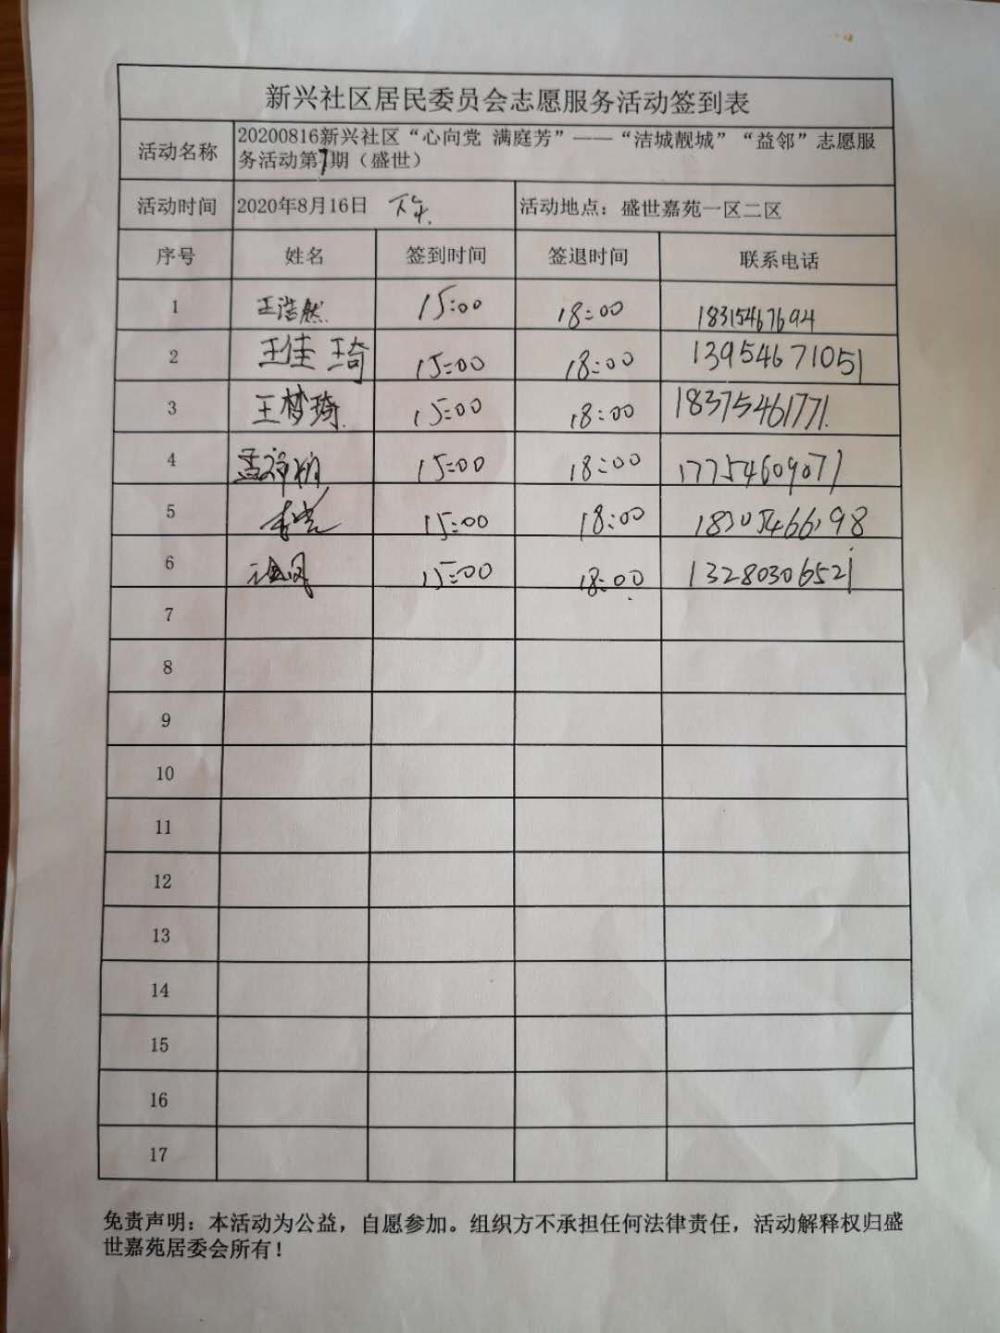 新兴社区居民委员会志愿服务活动签到表
活动名称 20200816新兴社区“心向党 满庭芳”——“洁城靓城”“益邻”志愿服
务活动第7期（盛世）
活动时间 2020年8月16日 下午. 活动地点：盛世嘉苑一区二区
序号 姓名 签到时间 签退时间 联系电话
1 王浩然 15:00 18:00 18315467694
2 王佳琦 15:00 18:00 13954671051
3 王梦琦 15:00 18:00 18375461771
4 15:00 18:00 17754609071
5 15:00 18:00 18305466198
6 15:00 18:00 13280306521
7
8
9
10
11
12
13
14
15
16
17
免责声明：本活动为公益，自愿参加。组织方不承担任何法律责任，活动解释权归盛
世嘉苑居委会所有！